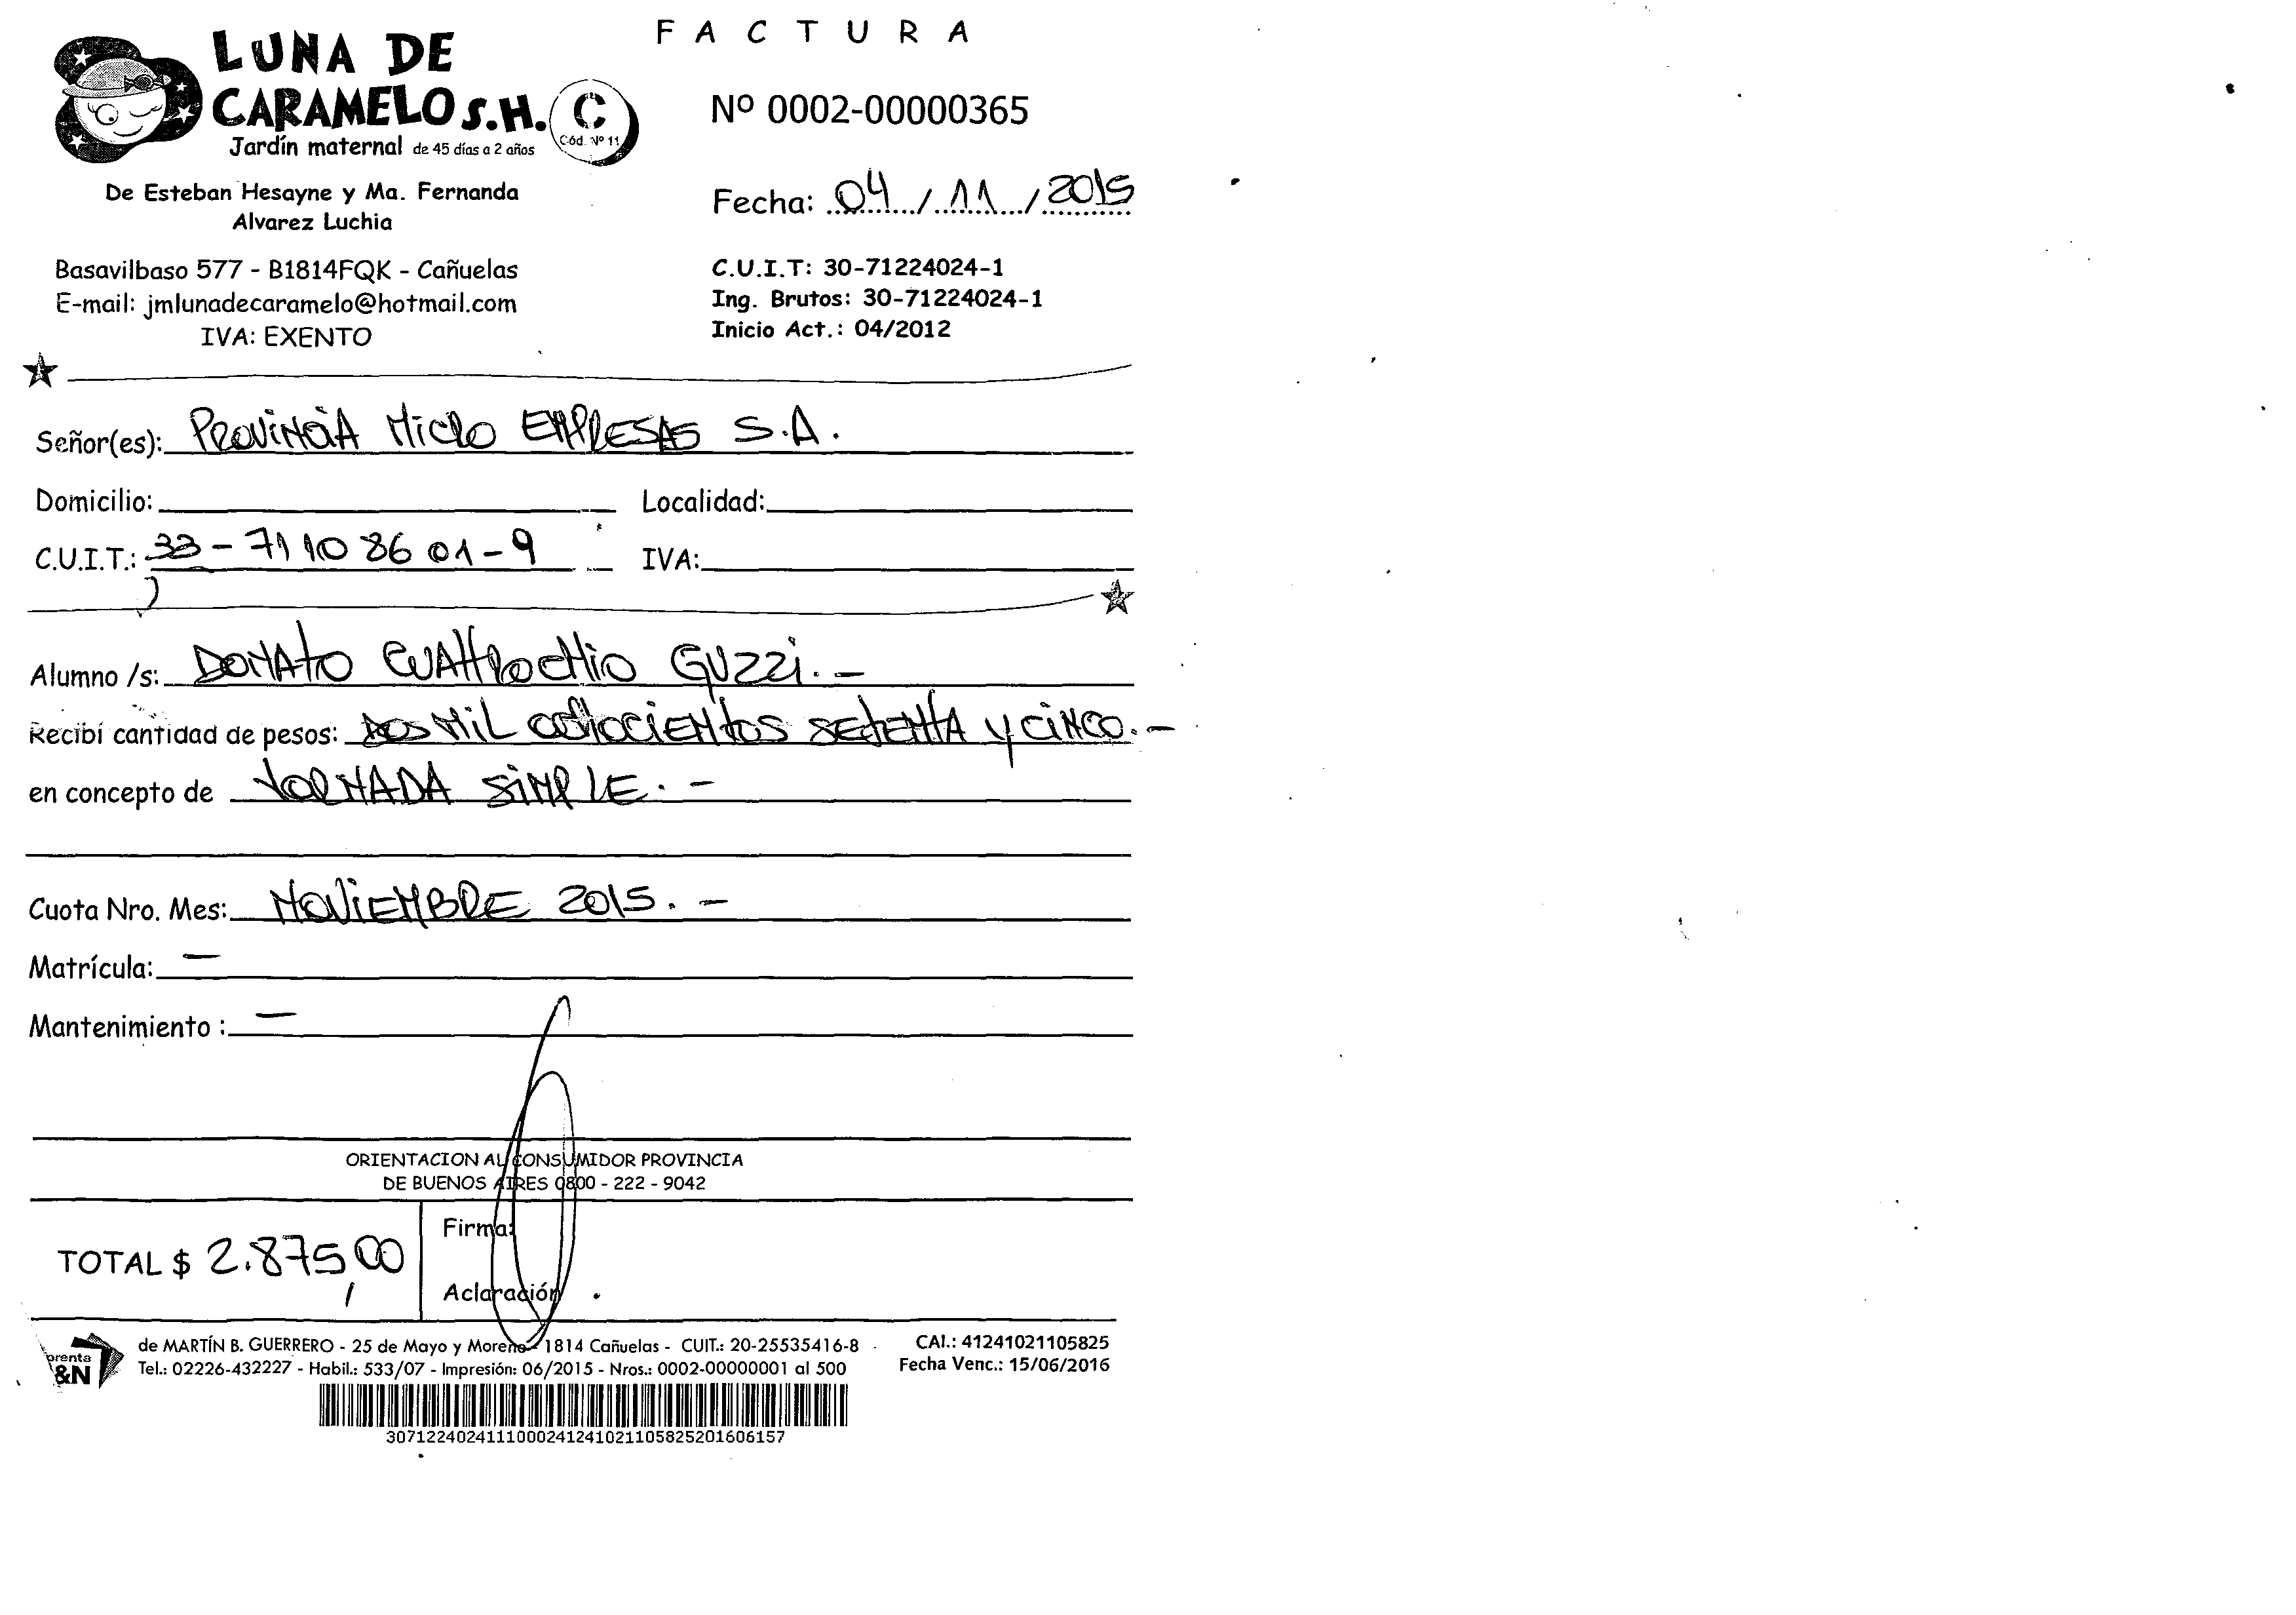 FACTURA
LUNA DE
CARAMELO S.H.
Jardín maternal de 45 días a 2 años
C
Cód. Nº 11
Nº 0002-00000365
De Esteban Hesayne y Ma. Fernanda
Alvarez Luchia
Fecha: 04/11/2015
Basavilbaso 577 - B1814FQK - Cañuelas
E-mail: jmlunadecaramelo@hotmail.com
IVA: EXENTO
C.U.I.T: 30-71224024-1
Ing. Brutos: 30-71224024-1
Inicio Act.: 04/2012
Señor(es): PROVINCIA MICRO EMPRESAS S.A.
Domicilio: Localidad:
C.U.I.T.: 33-71108601-9 IVA:
Alumno /s: DONATO CUATTROCHIO GUZZI.-
Recibí cantidad de pesos: DOS MIL OCHOCIENTOS SETENTA Y CINCO.-
en concepto de JORNADA SIMPLE.-
Cuota Nro. Mes: NOVIEMBRE 2015.-
Matrícula: -
Mantenimiento : -
ORIENTACION AL CONSUMIDOR PROVINCIA
DE BUENOS AIRES 0800 - 222 - 9042
TOTAL $ 2.875,00
Firma:
Aclaración
prenta
&N
de MARTÍN B. GUERRERO - 25 de Mayo y Moreno - 1814 Cañuelas - CUIT.: 20-25535416-8
Tel.: 02226-432227 - Habil.: 533/07 - Impresión: 06/2015 - Nros.: 0002-00000001 al 500
CAI.: 41241021105825
Fecha Venc.: 15/06/2016
307122402411100024124102110582520160615​7